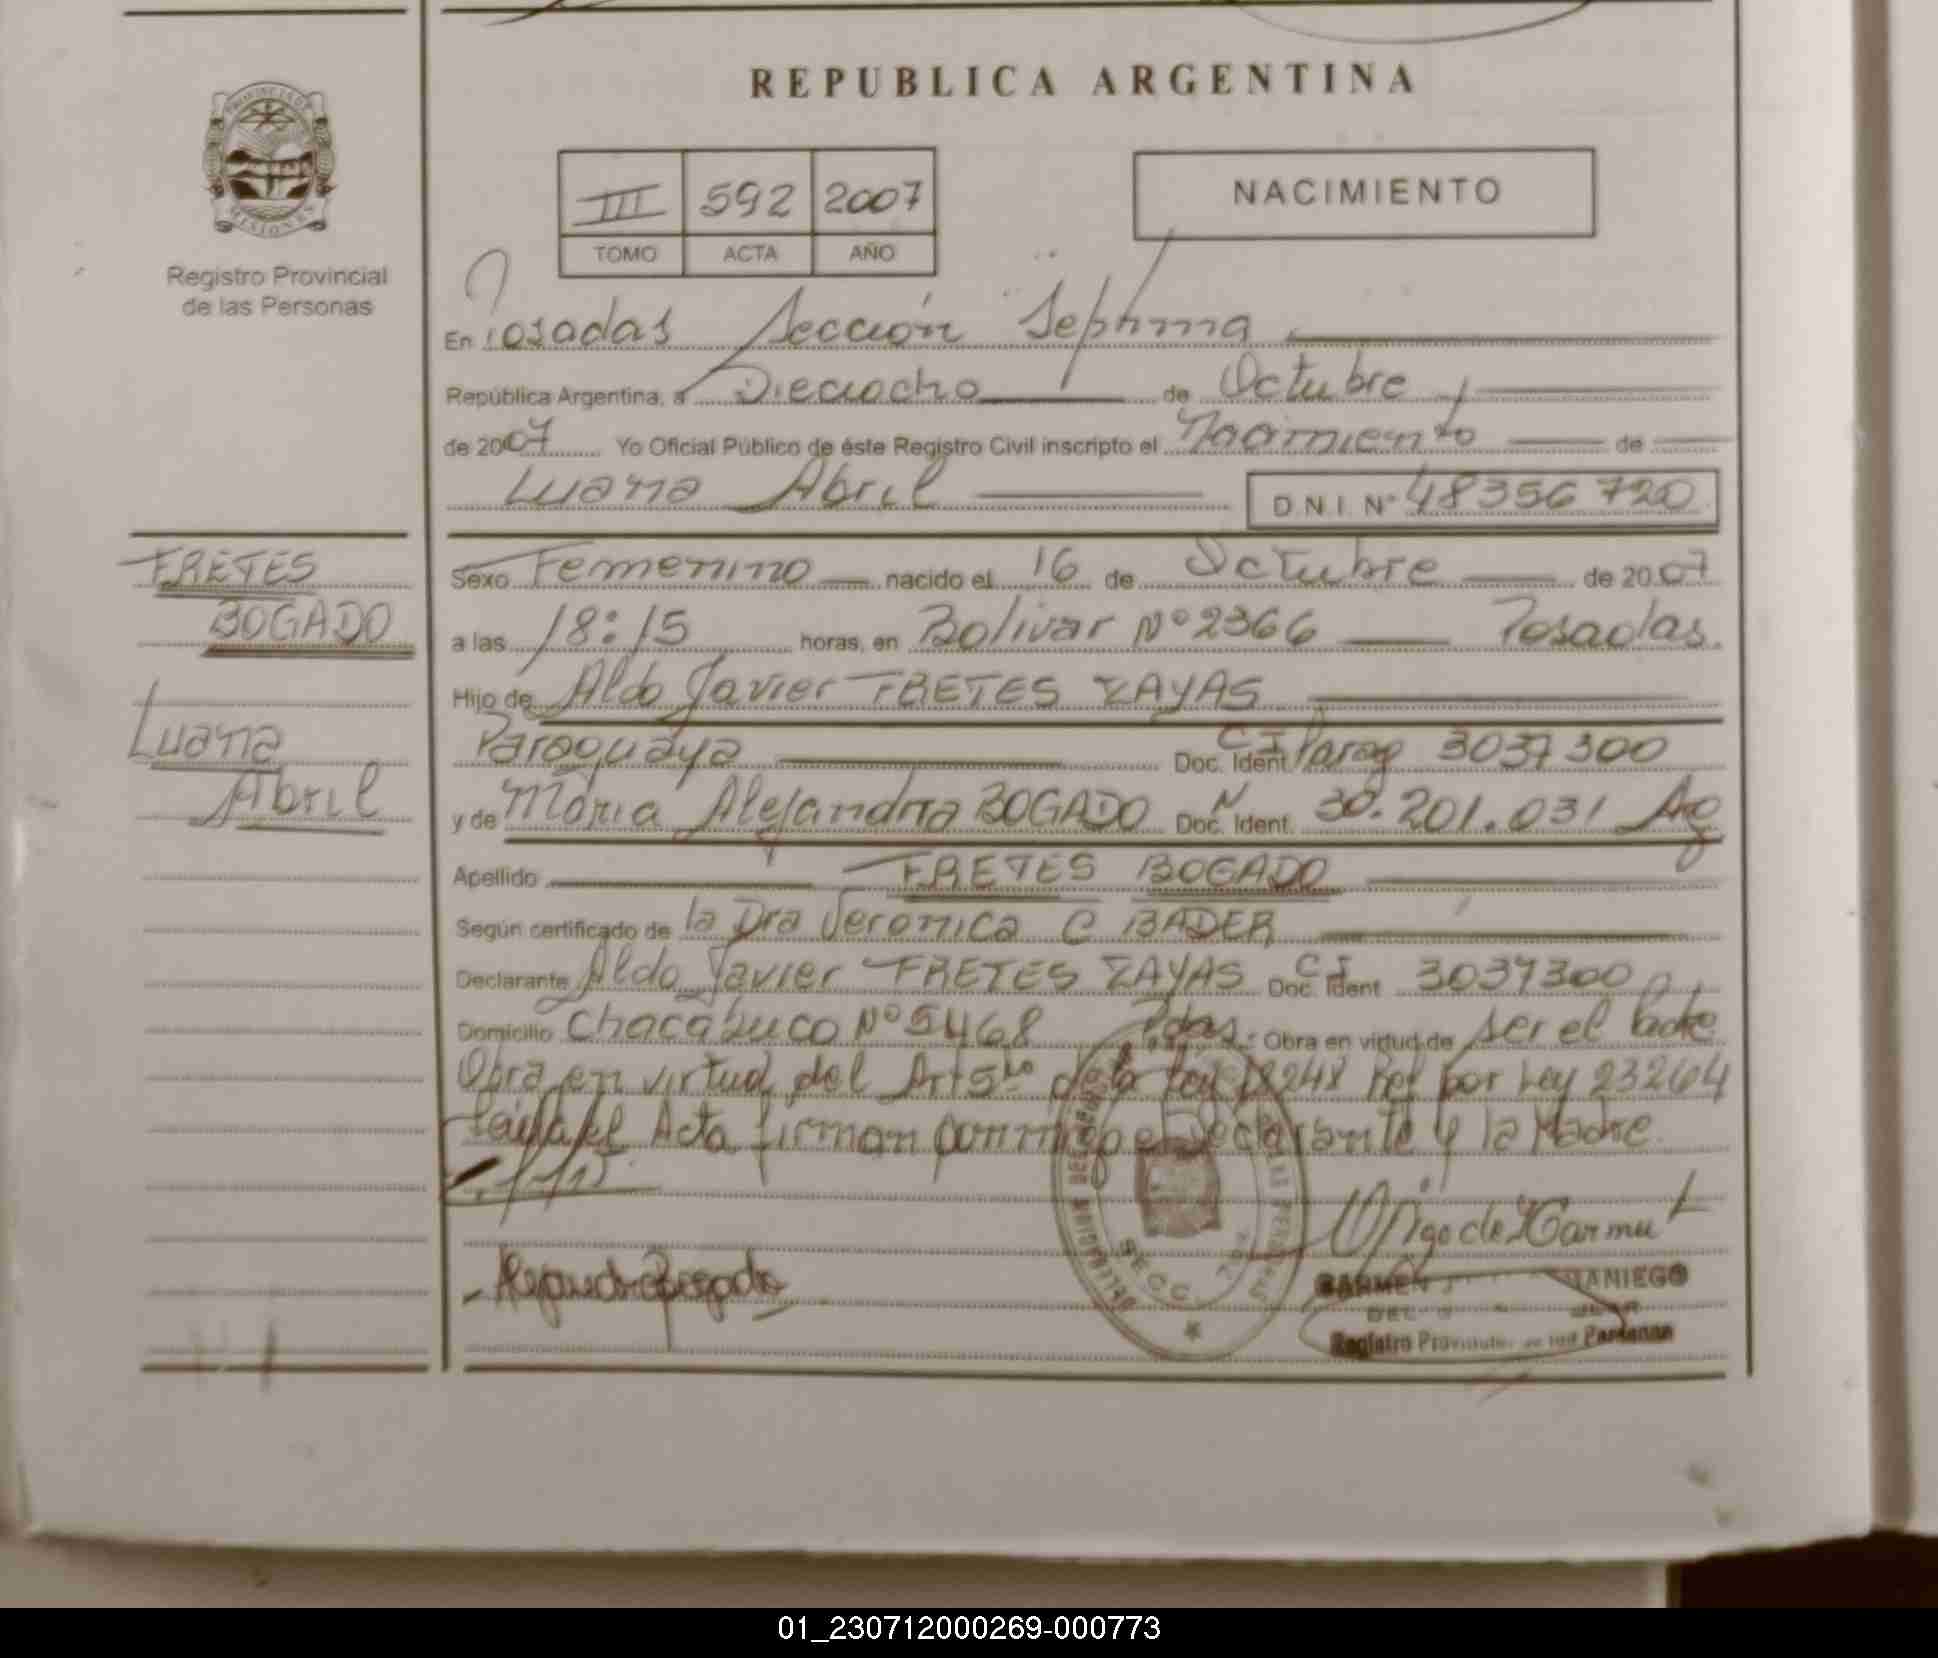 REPUBLICA ARGENTINA
PROVINCIA DE
MISIONES
Registro Provincial
de las Personas
III 592 2007
TOMO ACTA AÑO
NACIMIENTO
En Posadas Sección Septima
República Argentina, a Dieciocho de Octubre
de 2007 Yo Oficial Público de éste Registro Civil inscripto el Nacimiento de
Luana Abril D.N.I. Nº 48356720
FRETES
BOGADO
Luana
Abril
Sexo Femenino nacido el 16 de Octubre de 2007
a las 18:15 horas, en Bolivar Nº 2366 Posadas.
Hijo de Aldo Javier FRETES ZAYAS
Paraguaya Doc. Ident. C I Parag 3037300
y de Maria Alejandra BOGADO Doc. Ident. N 30.201.031 Arg
Apellido FRETES BOGADO
Según certificado de la Dra Veronica C BADER
Declarante Aldo Javier FRETES ZAYAS Doc. Ident C I 3037300
Domicilio Chacabuco Nº 5468 Pdas. Obra en virtud de ser el Padre
Obra en virtud del Art 5to de la Ley 18248 Ref por Ley 23264
Leida el Acta firman conmigo el Declarante y la Madre.
Alejandra Bogado
SECC. 7
CARMEN MANIEGO
DEL
Registro Provincial de las Personas
01_230712000269-000773